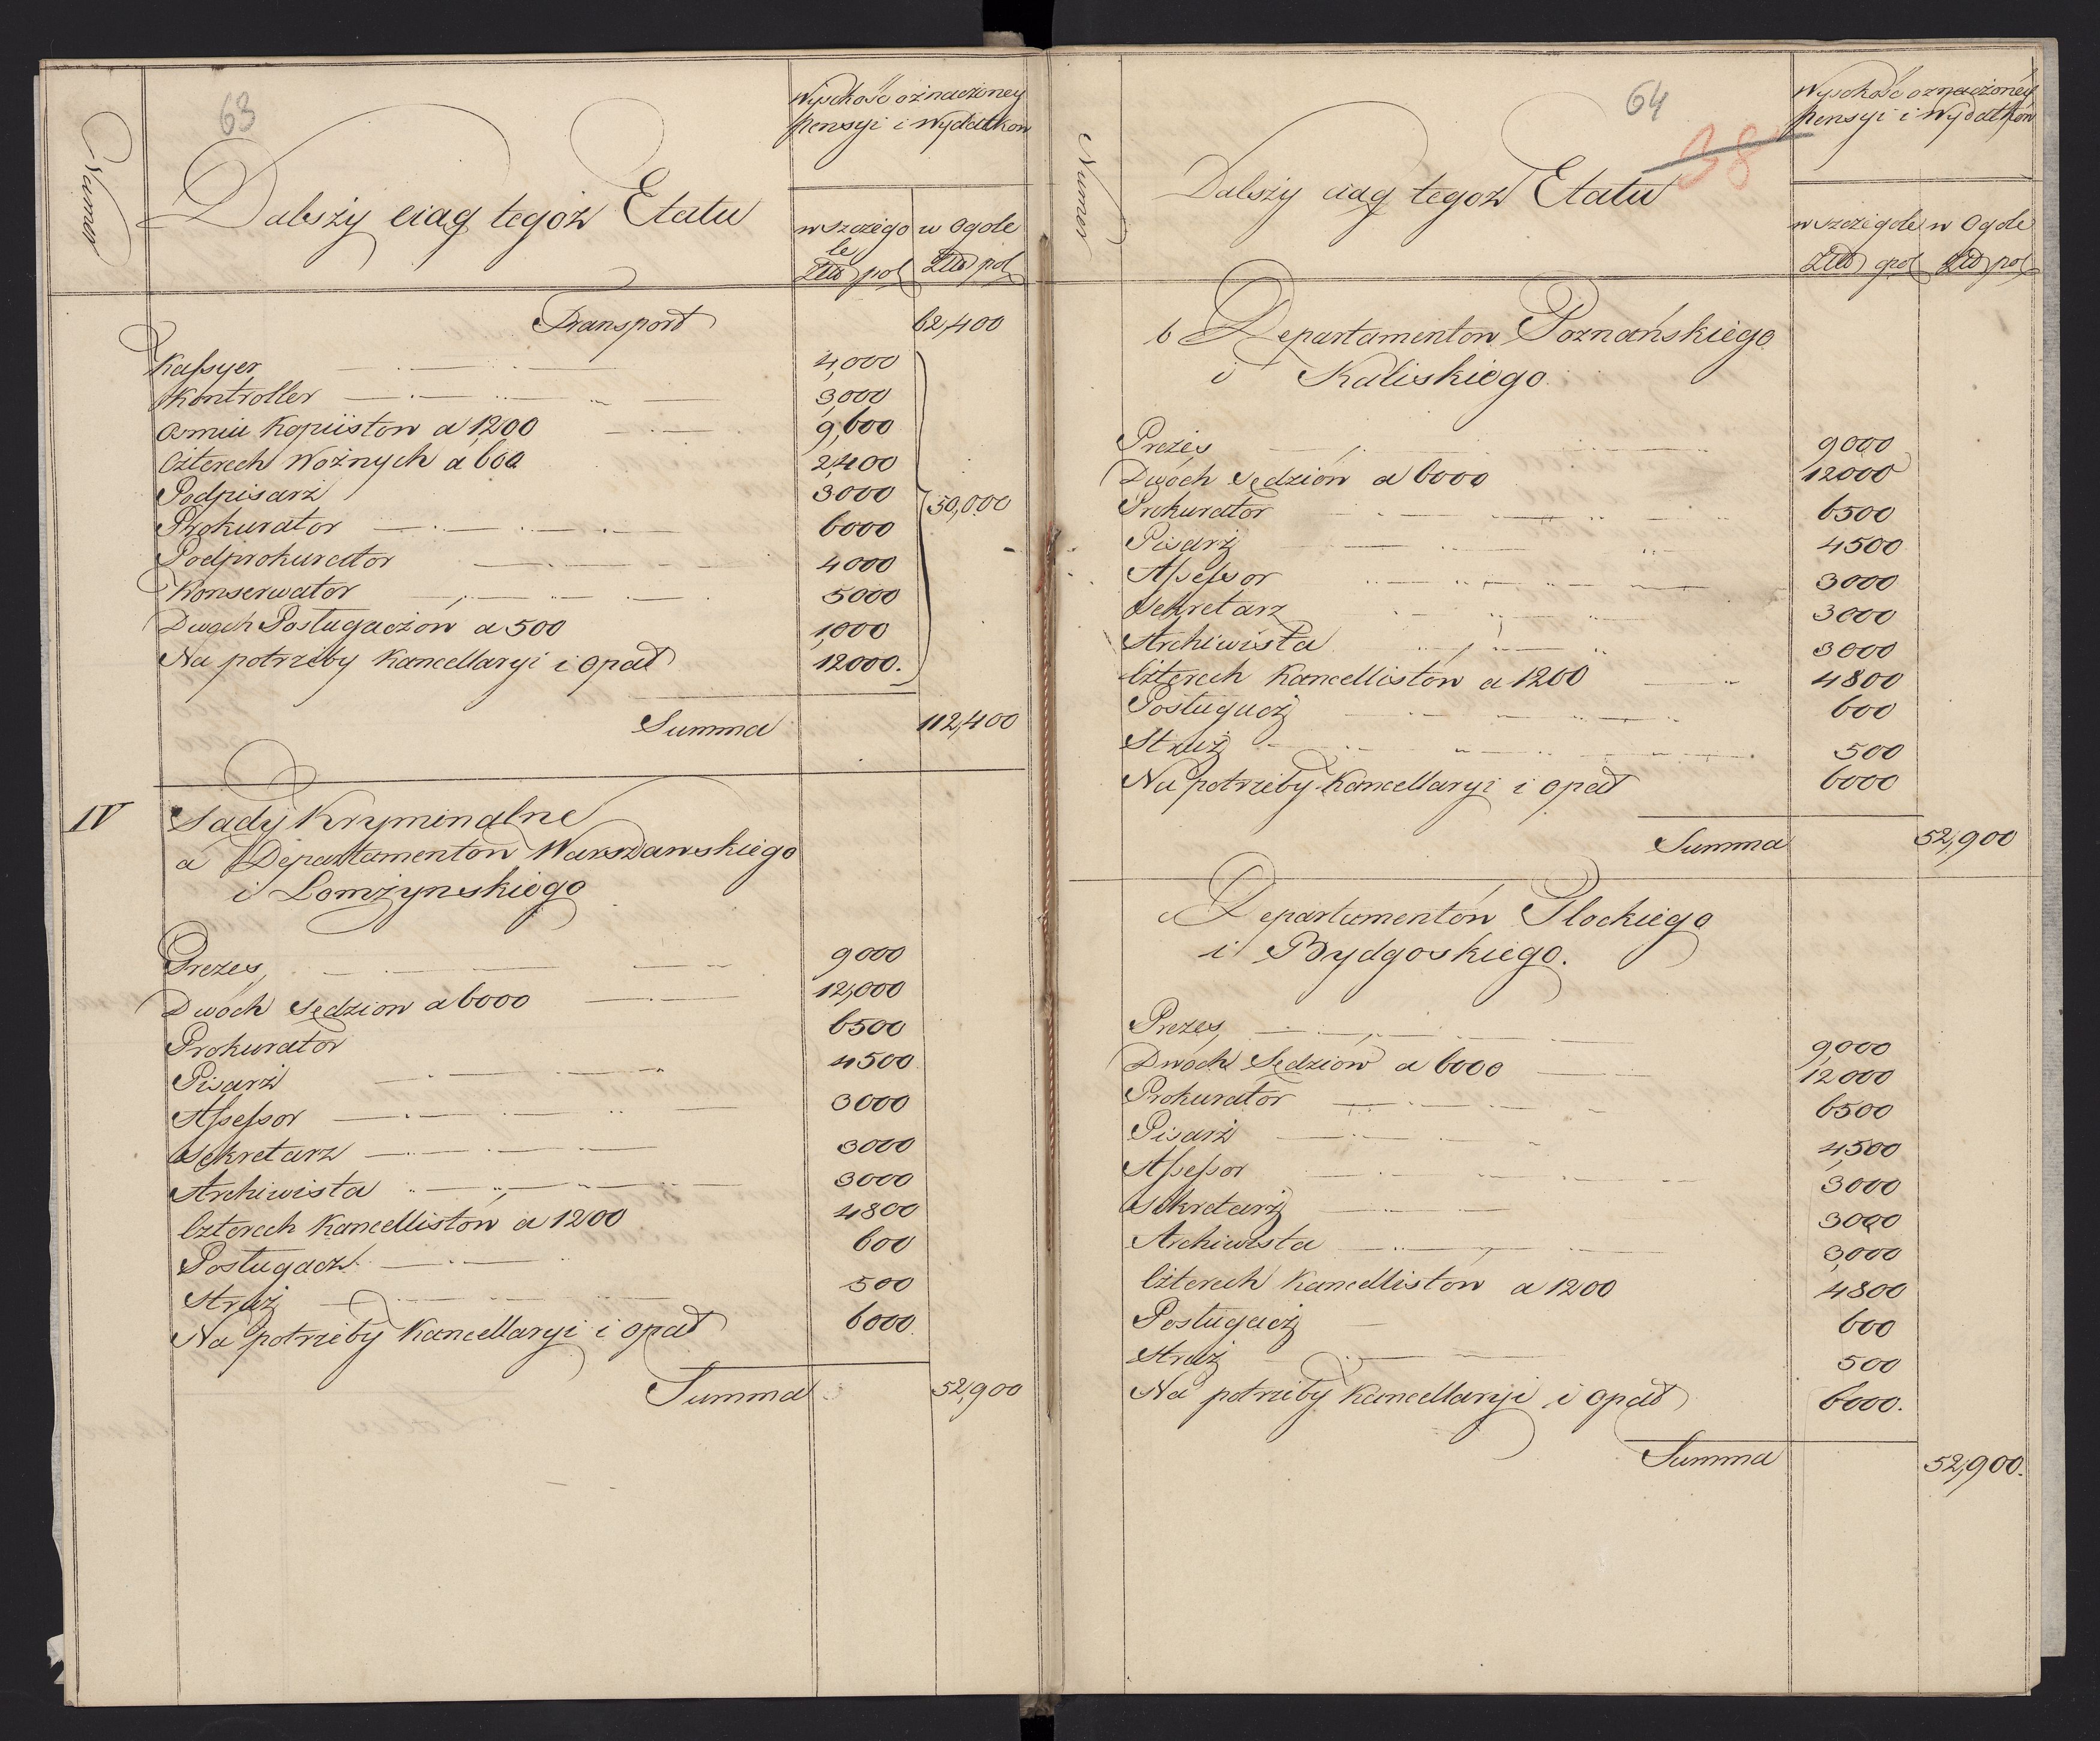 63
Numer
Dalszy ciąg tegoż Etatu
Wysokość oznaczoney
pensyi i Wydatkow
w szczego
le
w Ogole
Złł pol
Złł pol
Transport 62,400
Kassyer 4,000
Kontroller 3,000
Osmiu Kopiistow a 1200 9,600
Czterech Woźnych a 600 2,400
Podpisarz 3000
Prokurator 6000
Podprokurator 4000
Konserwator 5000
Dwoch Posługaczów a 500 1,000
Na potrzeby Kancellaryi i opał 12000.
50,000
Summa 112,400
IV Sady Kryminalne
a Departamentow Warszawskiego
i Lomżynskiego
Prezes 9000
Dwóch Sędziow a 6000 12,000
Prokurator 6500
Pisarż 4500
Assessor 3000
Sekretarz 3000
Archiwista 3000
Czterech Kancellistów a 1200 4800
Posługacz 600
Struż 500
Na potrzeby Kancellaryi i opał 6000.
Summa 52,900
64
38
Numer
Dalszy ciąg tegoż Etatu
Wysokość oznaczoney
pensyi i Wydatków
w szczegole
w Ogole
Złł pol
Złł pol
b Departamentow Poznańskiego
i Kaliskiego
Prezes 9000
Dwóch Sędziów a 6000 12000
Prokurator 6500
Pisarż 4500
Assessor 3000
Sekretarz 3000
Archiwista 3000
Czterech Kancellistów a 1200 4800
Posługacż 600
Struż 500
Na potrzeby Kancellaryi i opał 6000
Summa 52,900
c Departamentów Plockiego
i Bydgoskiego.
Prezes 9,000
Dwóch Sędziów a 6000 12000
Prokurator 6500
Pisarż 4,500
Assessor 3000
Sekretarż 3000
Archiwista 3,000
Czterech Kancellistów a 1200 4800
Posługacż 600
Struż 500
Na potrzeby Kancellaryi i opał 6000.
Summa 52,900.